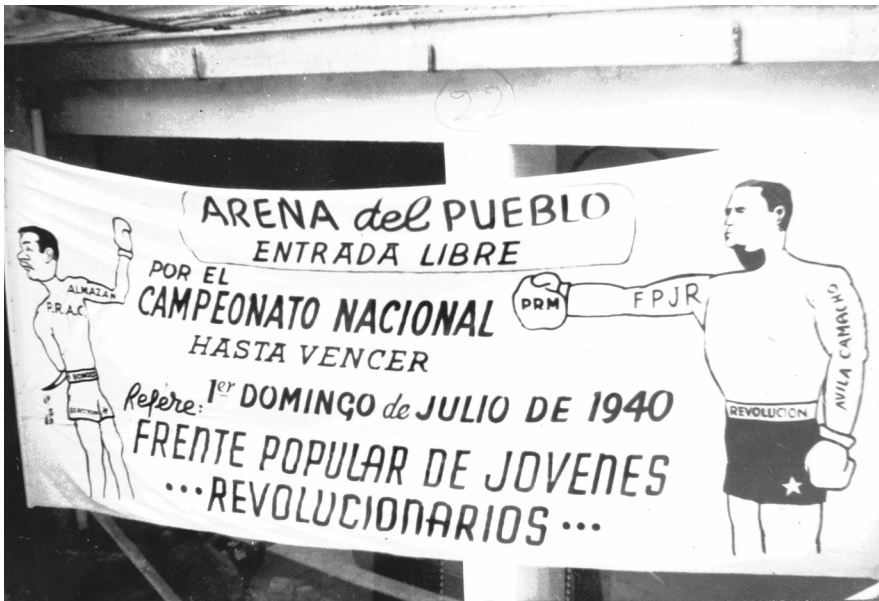 22
ARENA del PUEBLO
ENTRADA LIBRE
POR EL
CAMPEONATO NACIONAL
HASTA VENCER
Refere: 1er DOMINGO de JULIO DE 1940
FRENTE POPULAR DE JOVENES
...REVOLUCIONARIOS...
ALMAZAN
P.R.A.C.
PRM
FPJR
AVILA CAMACHO
REVOLUCION